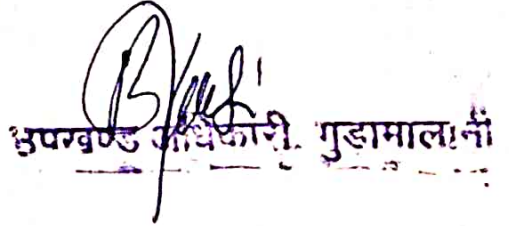 उपखण्ड अधिकारी, गुडामालानी